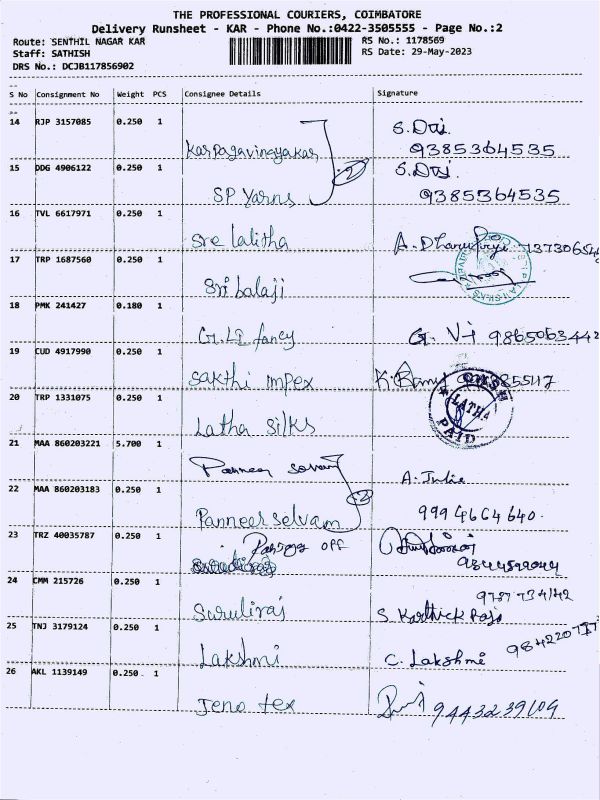 THE PROFESSIONAL COURIERS, COIMBATORE
Delivery Runsheet - KAR - Phone No.:0422-3505555 - Page No.:2
Route: SENTHIL NAGAR KAR
RS No.: 1178569
Staff: SATHISH
RS Date: 29-May-2023
DRS No.: DCJB117856902
S No Consignment No Weight PCS Consignee Details Signature
14 RJP 3157085 0.250 1
Karpagavinayakar
9385364535
15 DDG 4906122 0.250 1
SP Yarns
9385364535
16 TVL 6617971 0.250 1
Sre lalitha
17 TRP 1687560 0.250 1
Sri balaji
18 PMK 241427 0.180 1
fancy
G. 9865063442
19 CUD 4917990 0.250 1
Sakthi Impex
20 TRP 1331075 0.250 1
Latha Silks
LATHA
PAID
21 MAA 860203221 5.700 1
Panneer Selvam
22 MAA 860203183 0.250 1
Panneer Selvam
2
9994664640
23 TRZ 40035787 0.250 1
off
24 CMM 215726 0.250 1
Saruliraj
S Karthick Raja
25 TNJ 3179124 0.250 1
Lakshmi
C. Lakshmi
26 AKL 1139149 0.250 1
Jeno tex
9443239109